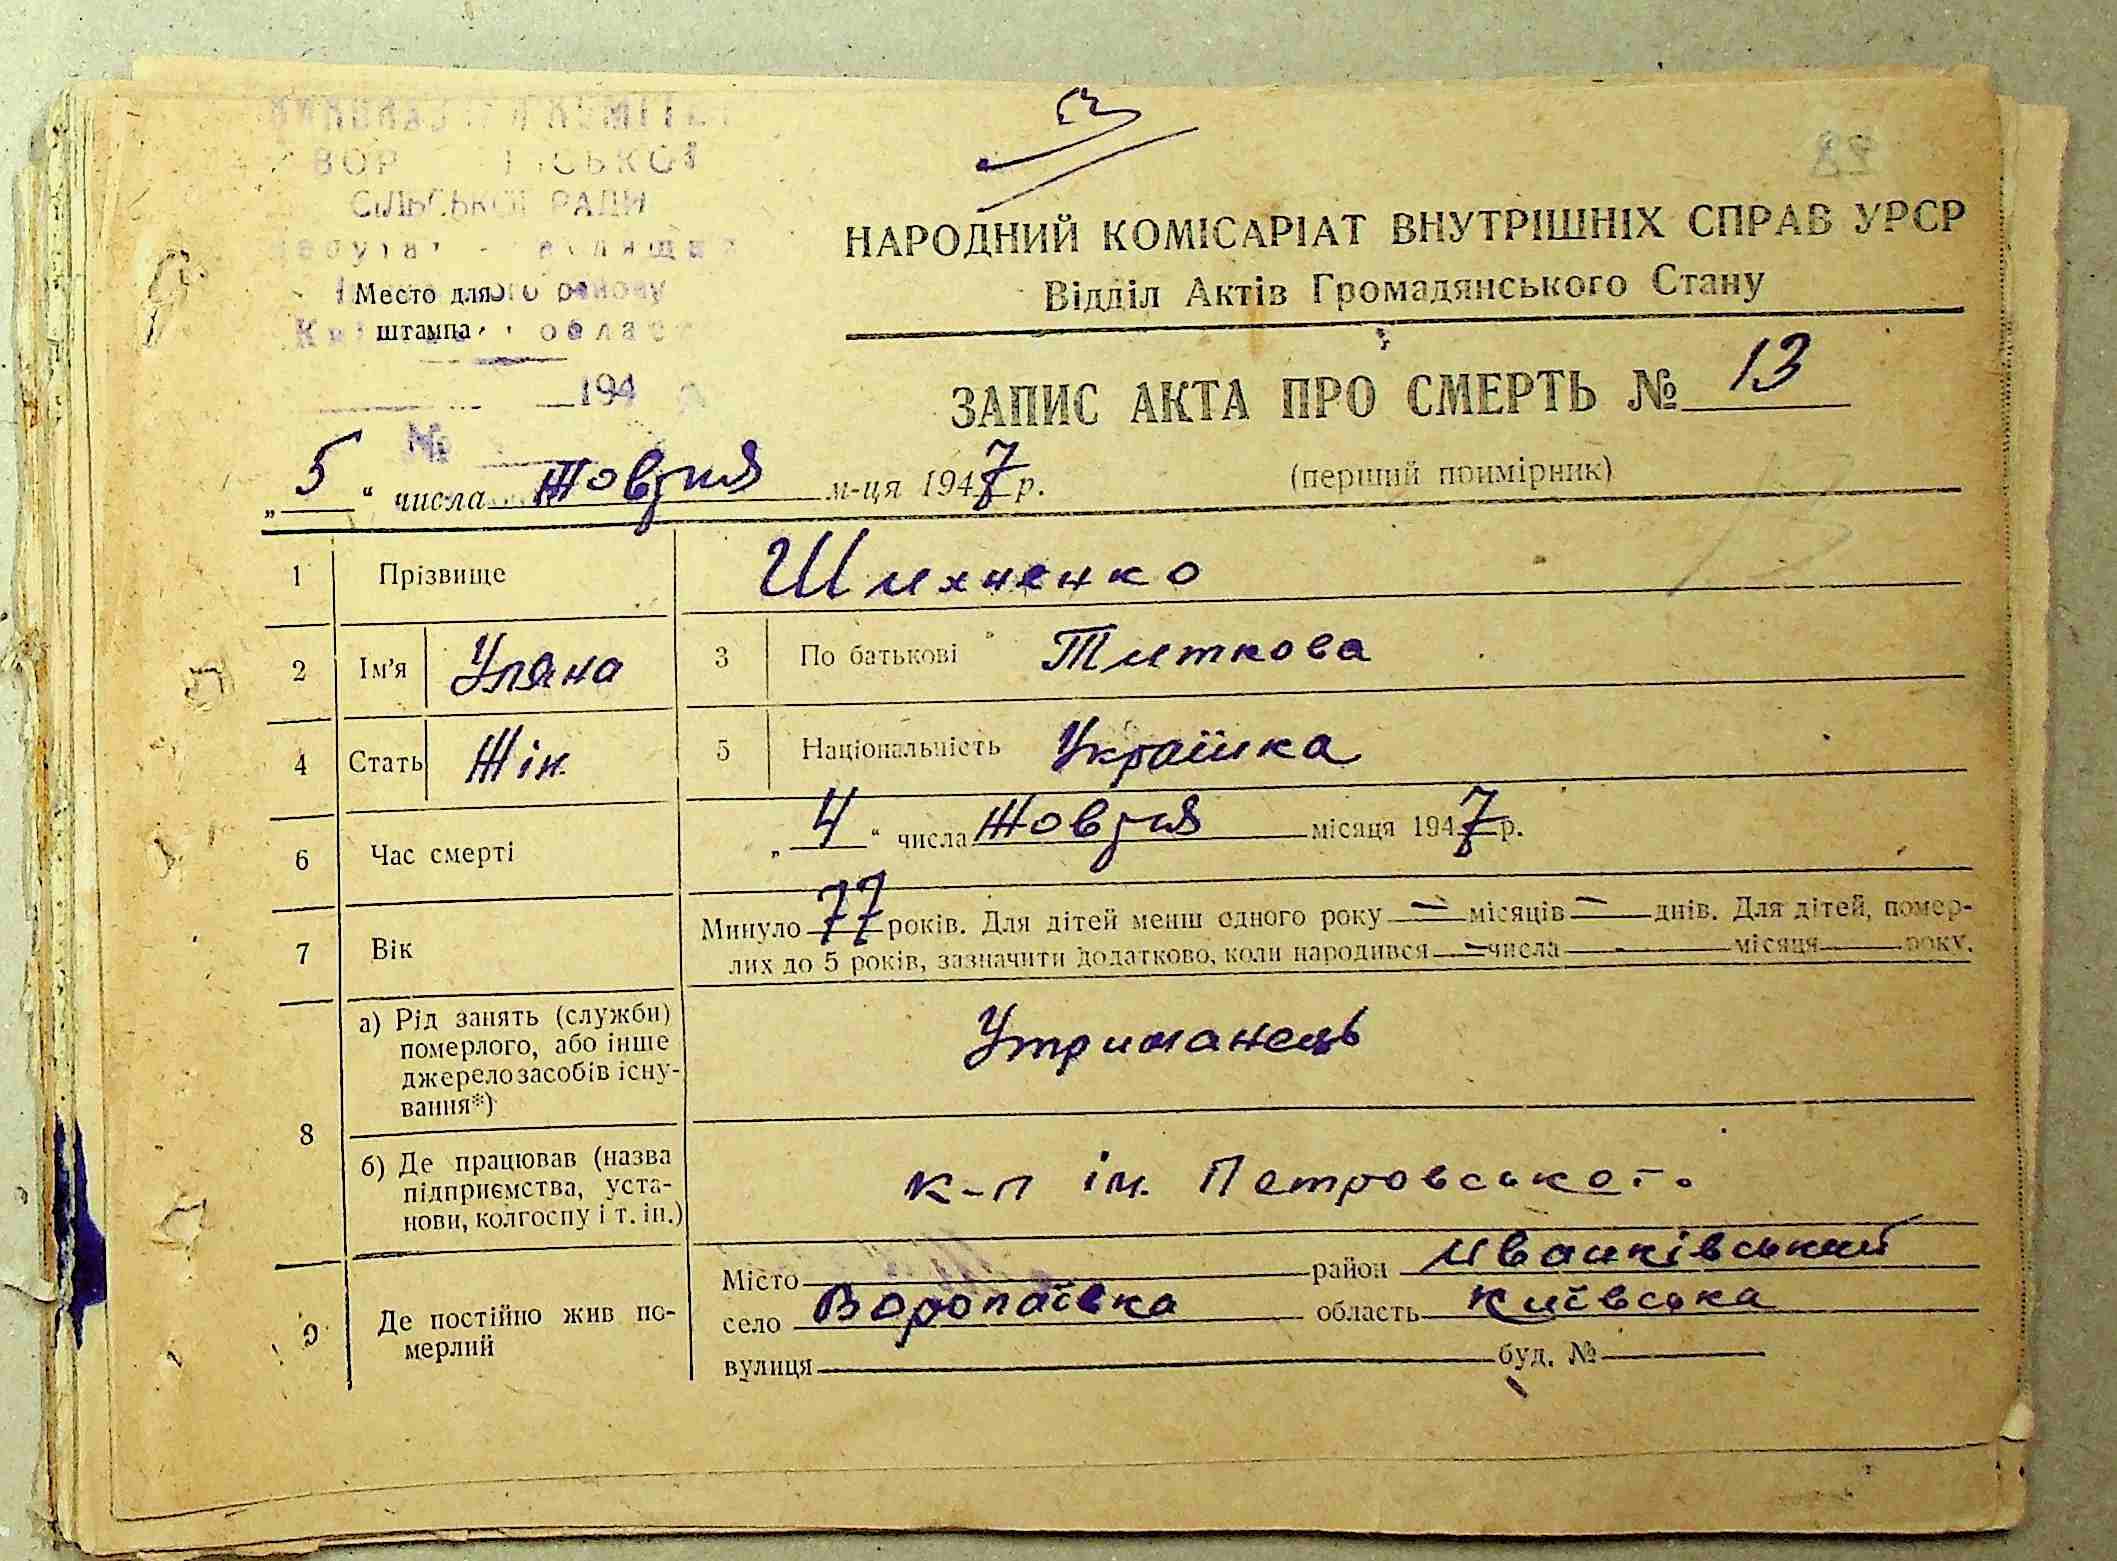 СІЛЬСЬКОЇ РАДИ
Место для
штампа
194
№
28
53
НАРОДНИЙ КОМІСАРІАТ ВНУТРІШНІХ СПРАВ УРСР
Відділ Актів Громадянського Стану
ЗАПИС АКТА ПРО СМЕРТЬ № 13
„5“ числа Жовтня м-ця 1947 р. (перший примірник)
1 Прізвище Шихненко
2 Ім'я Уляна 3 По батькові Титкова
4 Стать Жін. 5 Національність Українка
6 Час смерті „4“ числа Жовтня місяця 1947 р.
7 Вік Минуло 77 років. Для дітей менш одного року — місяців — днів. Для дітей, помер-
лих до 5 років, зазначити додатково, коли народився — числа — місяця — року.
8 а) Рід занять (служби)
померлого, або інше
джерело засобів існу-
вання*)
Утриманець
б) Де працював (назва
підприємства, уста-
нови, колгоспу і т. ін.)
к-п ім. Петровського
9 Де постійно жив по-
мерлий
Місто район Иванківський
село Воропаївка область Київська
вулиця буд. №